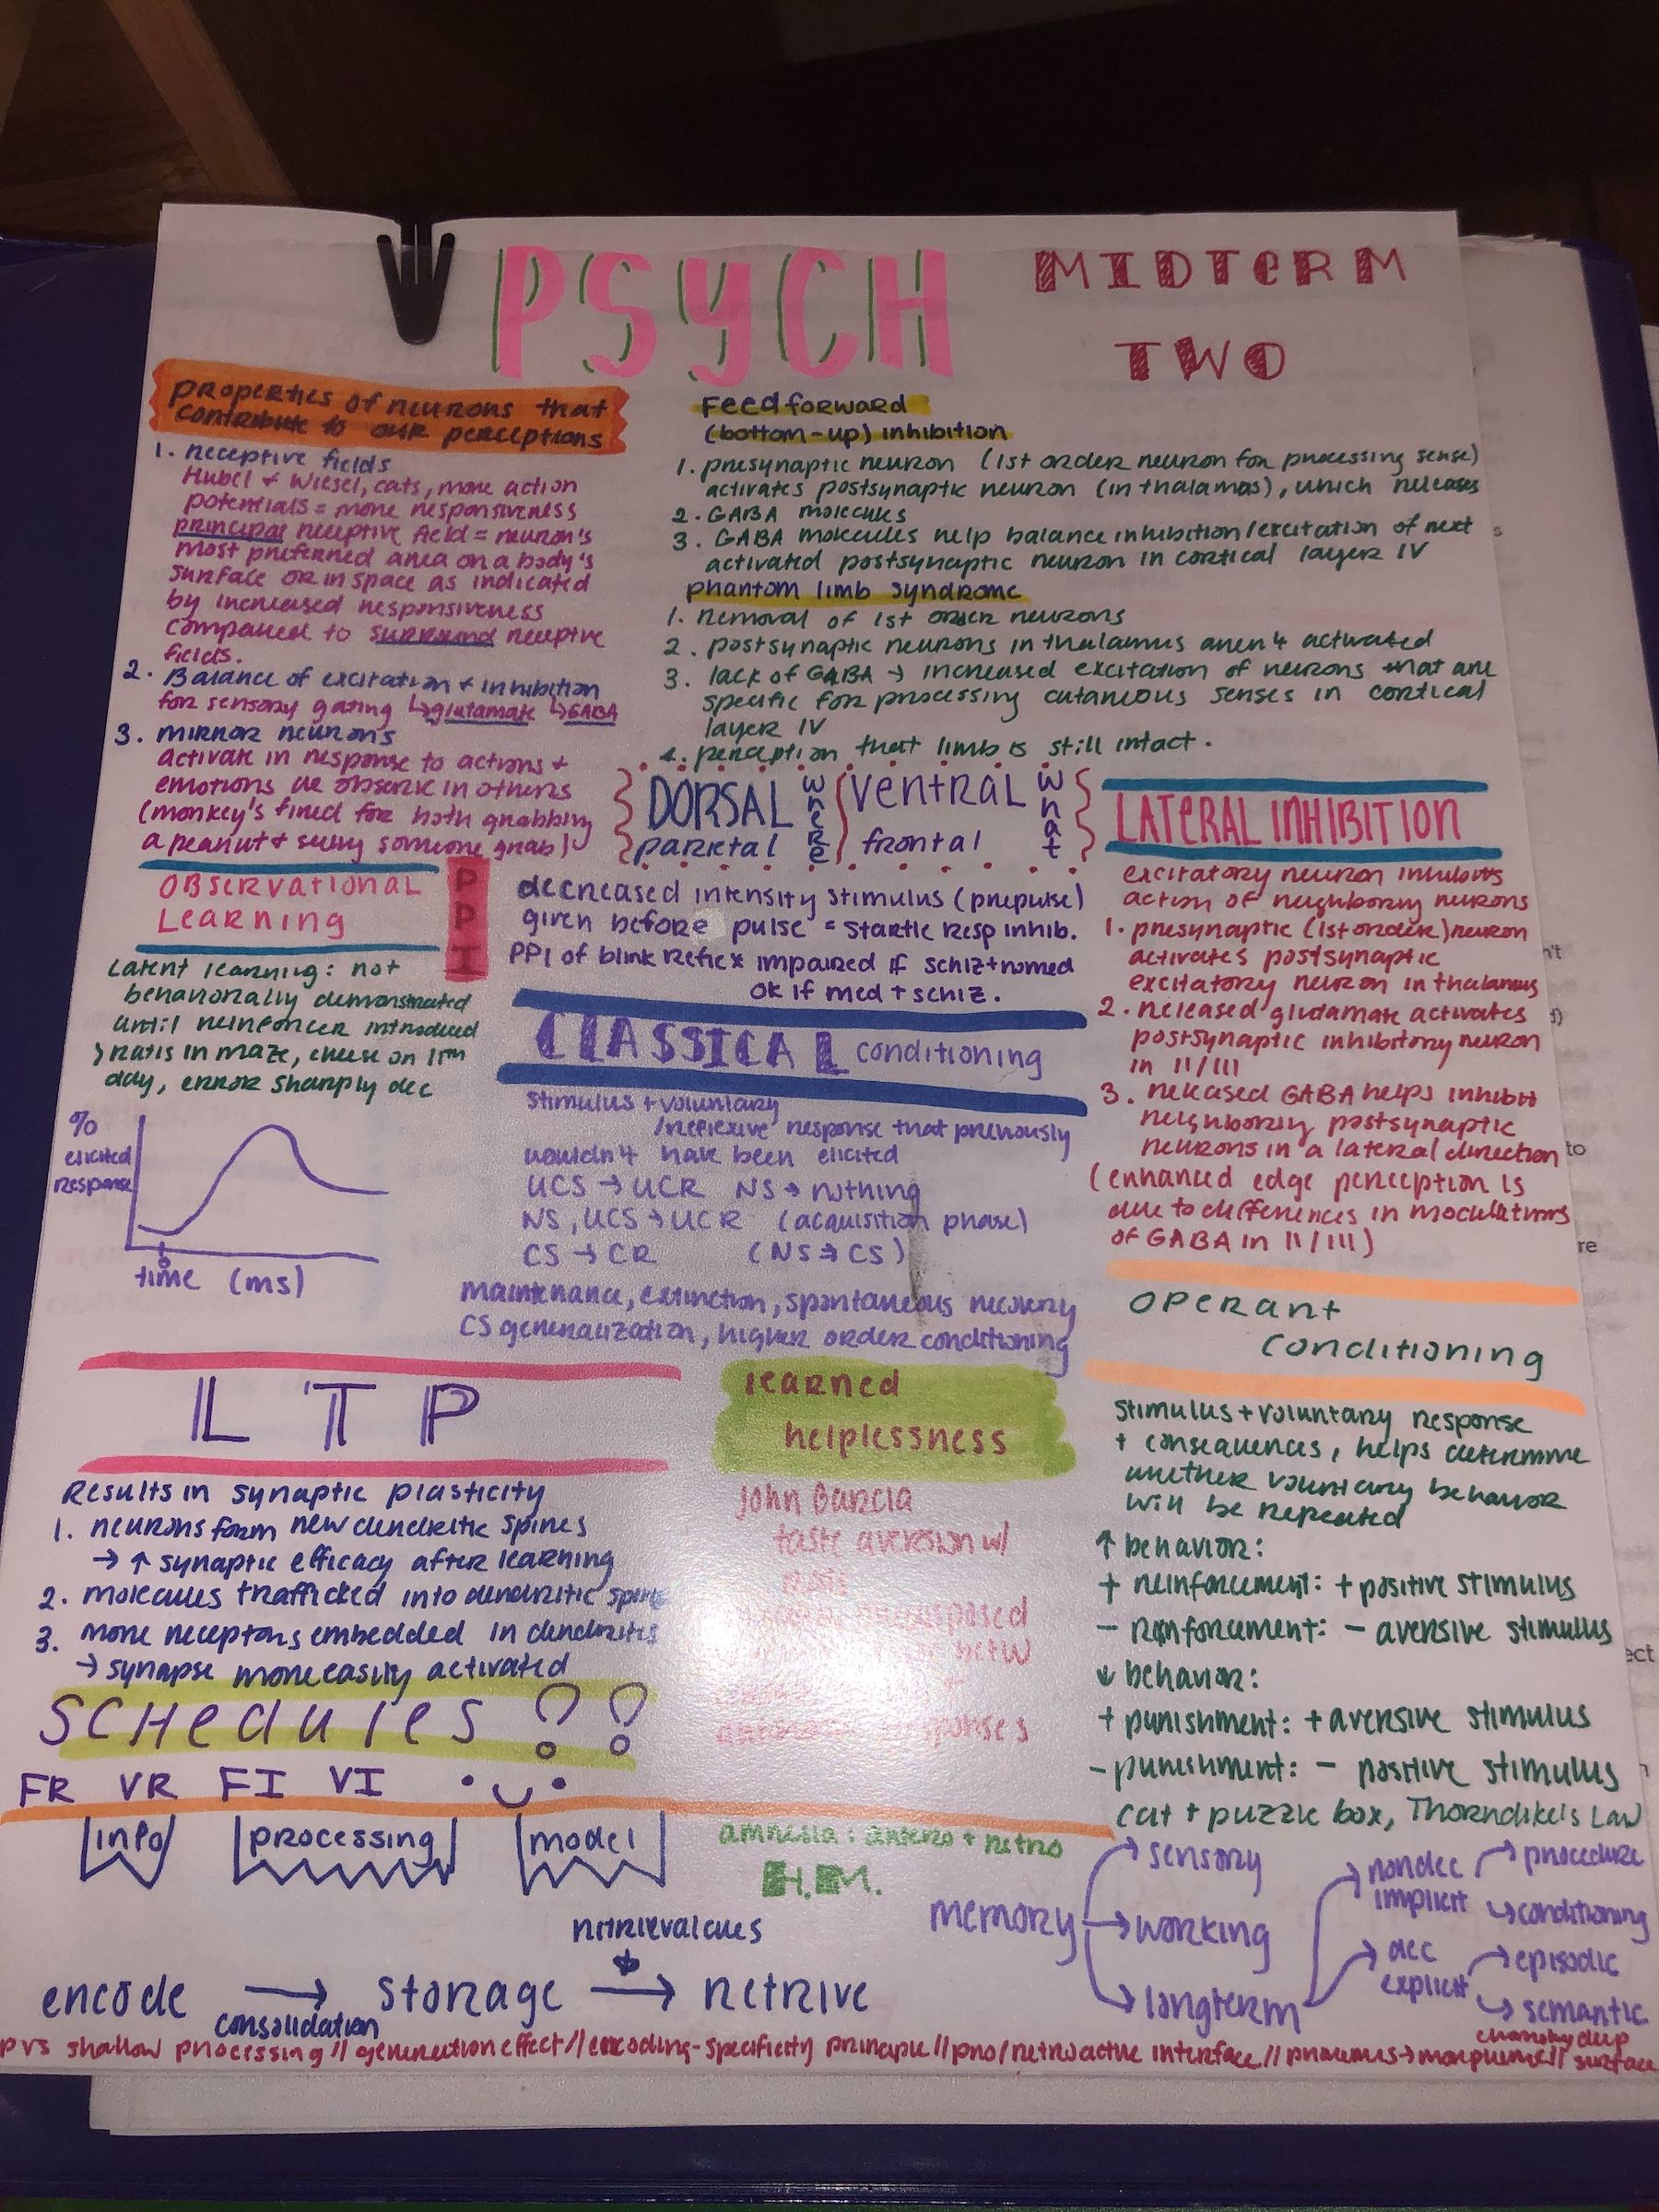 PSYCH
MIDTERM
TWO
properties of neurons that
contribute to our perceptions
1. receptive fields
Hubel + Wiesel, cats, more action
potentials = more responsiveness
principal receptive field = neuron's
most preferred area on a body's
surface or in space as indicated
by increased responsiveness
compared to surround receptive
fields.
2. Balance of excitation + inhibition
for sensory gating ↳glutamate ↳GABA
3. mirror neurons
activate in response to actions +
emotions we observe in others
(monkey's fired for both grabbing
a peanut + seeing someone grab)
Feedforward
(bottom-up) inhibition
1. presynaptic neuron (1st order neuron for processing sense)
activates postsynaptic neuron (in thalamas), which releases
2. GABA molecules
3. GABA molecules help balance inhibition/excitation of next
activated postsynaptic neuron in cortical layer IV
phantom limb syndrome
1. removal of 1st order neurons
2. postsynaptic neurons in thalamus aren't activated
3. lack of GABA → increased excitation of neurons that are
specific for processing cutaneous senses in cortical
layer IV
4. perception that limb is still intact.
DORSAL where
parietal
ventral what
frontal
OBSERVATIONAL
Learning
Latent learning: not
behaviorally demonstrated
until reinforcer introduced
rats in maze, cheese on 11th
day, error sharply dec
PPI
decreased intensity stimulus (prepulse)
given before pulse = startle resp inhib.
PPI of blink reflex impaired if schiz + nomed
ok if med + schiz.
% elicited response
0
time (ms)
CLASSICAL conditioning
stimulus + voluntary
/reflexive response that previously
wouldn't have been elicited
UCS → UCR NS → nothing
NS, UCS → UCR (acquisition phase)
CS → CR (NS → CS)
maintenance, extinction, spontaneous recovery
CS generalization, higher order conditioning
LATERAL INHIBITION
excitatory neuron inhibits
action of neighboring neurons
1. presynaptic (1st order) neuron
activates postsynaptic
excitatory neuron in thalamus
2. released glutamate activates
postsynaptic inhibitory neuron
in II/III
3. released GABA helps inhibit
neighboring postsynaptic
neurons in a lateral direction
(enhanced edge perception is
due to differences in modulations
of GABA in II/III)
operant
conditioning
stimulus + voluntary response
+ consequences, helps determine
whether voluntary behavior
will be repeated
↑ behavior:
+ reinforcement: + positive stimulus
- reinforcement: - aversive stimulus
↓ behavior:
+ punishment: + aversive stimulus
- punishment: - positive stimulus
cat + puzzle box, Thorndike's Law
LTP
Results in synaptic plasticity
1. neurons form new dendritic spines
→ ↑ synaptic efficacy after learning
2. molecules trafficked into dendritic spine
3. more receptors embedded in dendrites
→ synapse more easily activated
learned
helplessness
John Garcia
taste aversion w/
betw
responses
schedules ??
FR VR FI VI
info processing model
amnesia: antero + retro
H.M.
retrieval cues
encode → storage → retrive
consolidation
memory
sensory
working
longterm
nondec
implicit
procedure
conditioning
dec
explicit
episodic
semantic
chomsky deep
p vs shallow processing // generection effect // encoding-specificity principle // pro/retroactive interface // → morpheme // surface
n't
to
re
ect